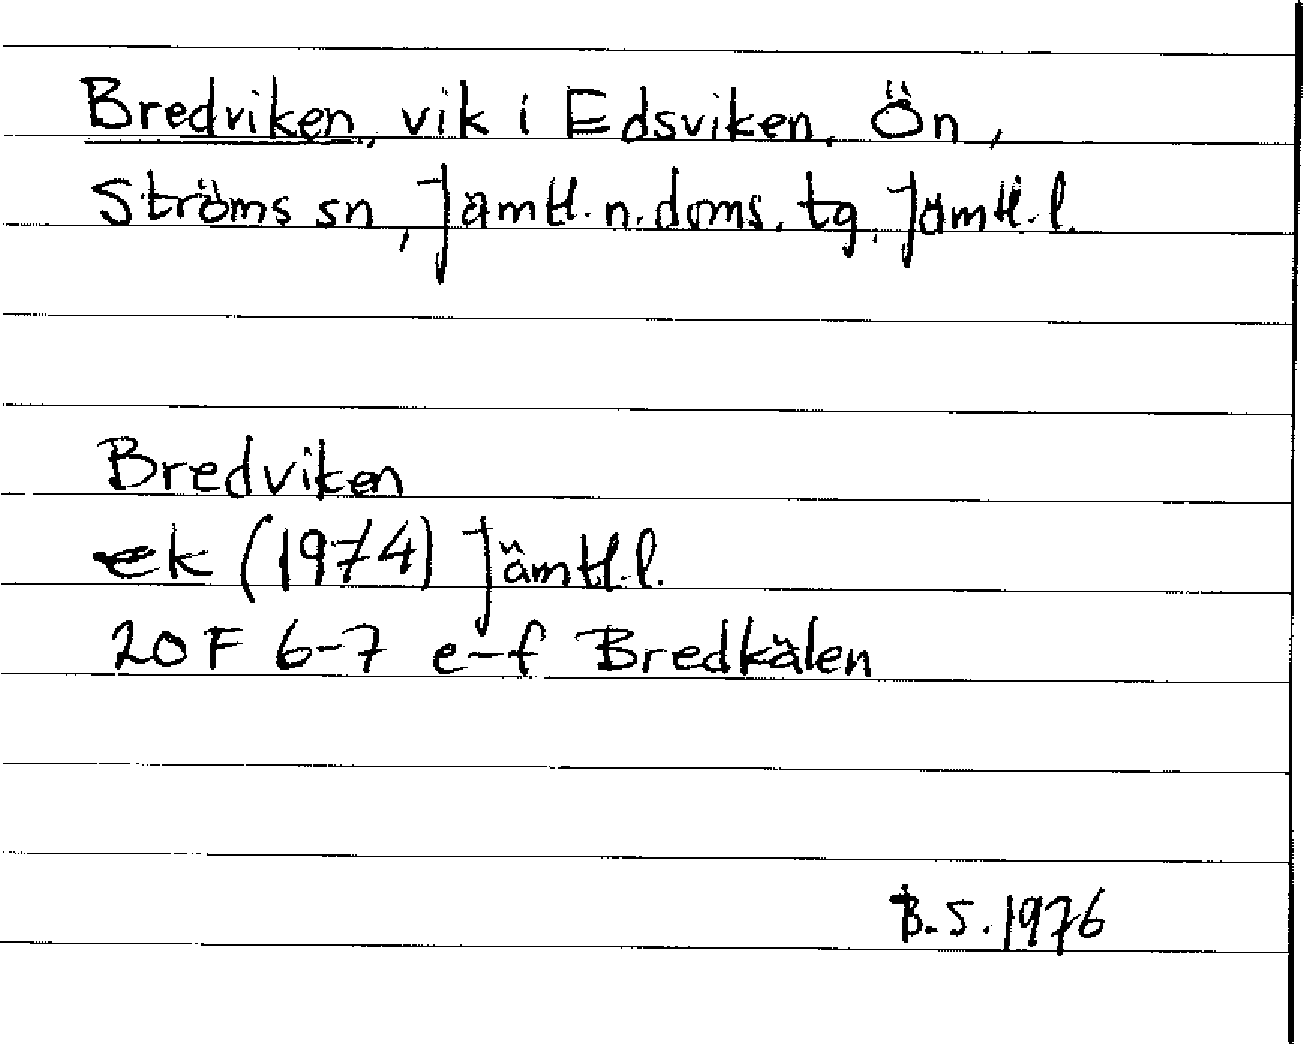 Bredviken, vik i Edsviken, Ön,
Ströms sn, Jämtl. n. doms. tg, Jämtl. l.
Bredviken
ek (1974) Jämtl. l.
20 F 6-7 e-f Bredkälen
B. S. 1976